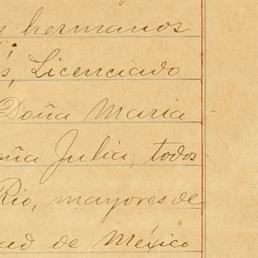 s hermanos
s, Licenciado
Doña Maria
oña Julia, todos
Rio, mayores de
ad de México